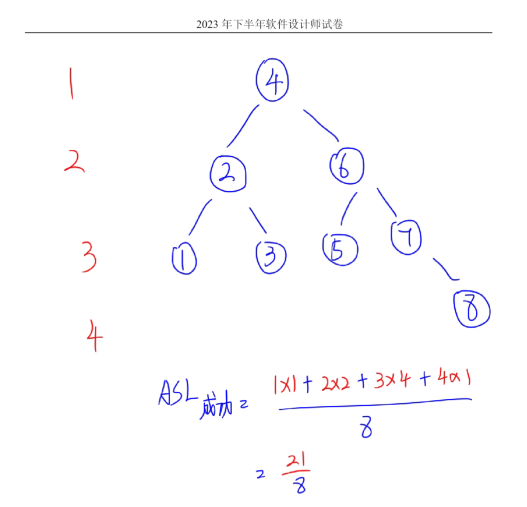 2023 年下半年软件设计师试卷
1
4
2
2
6
3
1
3
5
7
8
4
ASL成功 = 1×1 + 2×2 + 3×4 + 4×1 / 8
= 21 / 8